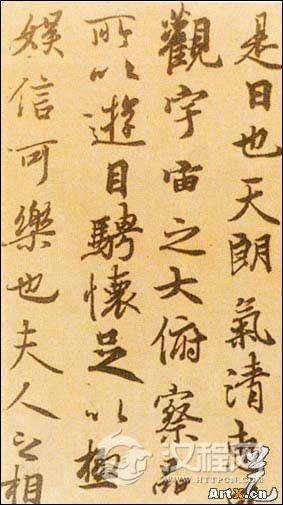 是日也天朗氣清
觀宇宙之大俯察品
所以遊目騁懷足以極
娛信可樂也夫人之相
汉程网
WWW.HTTPCN.COM
ArtX.cn